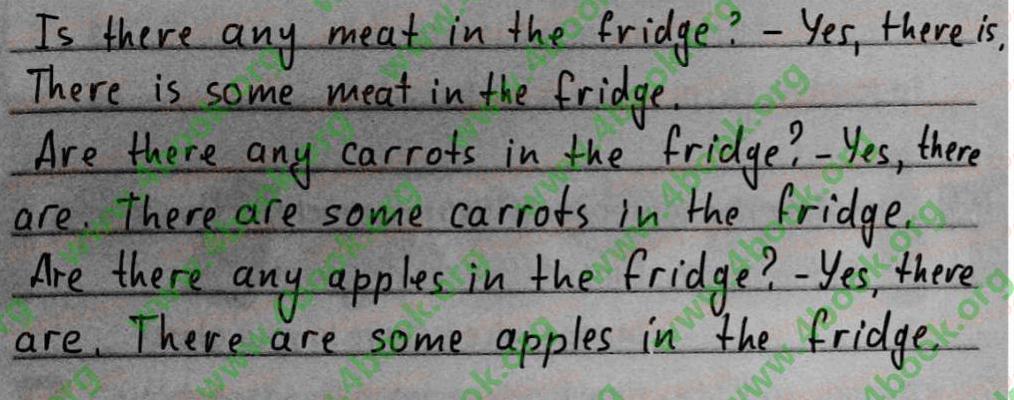 Is there any meat in the fridge? - Yes, there is.
There is some meat in the fridge.
Are there any carrots in the fridge? - Yes, there
are. There are some carrots in the fridge.
Are there any apples in the fridge? - Yes, there
are. There are some apples in the fridge.
www.4book.org